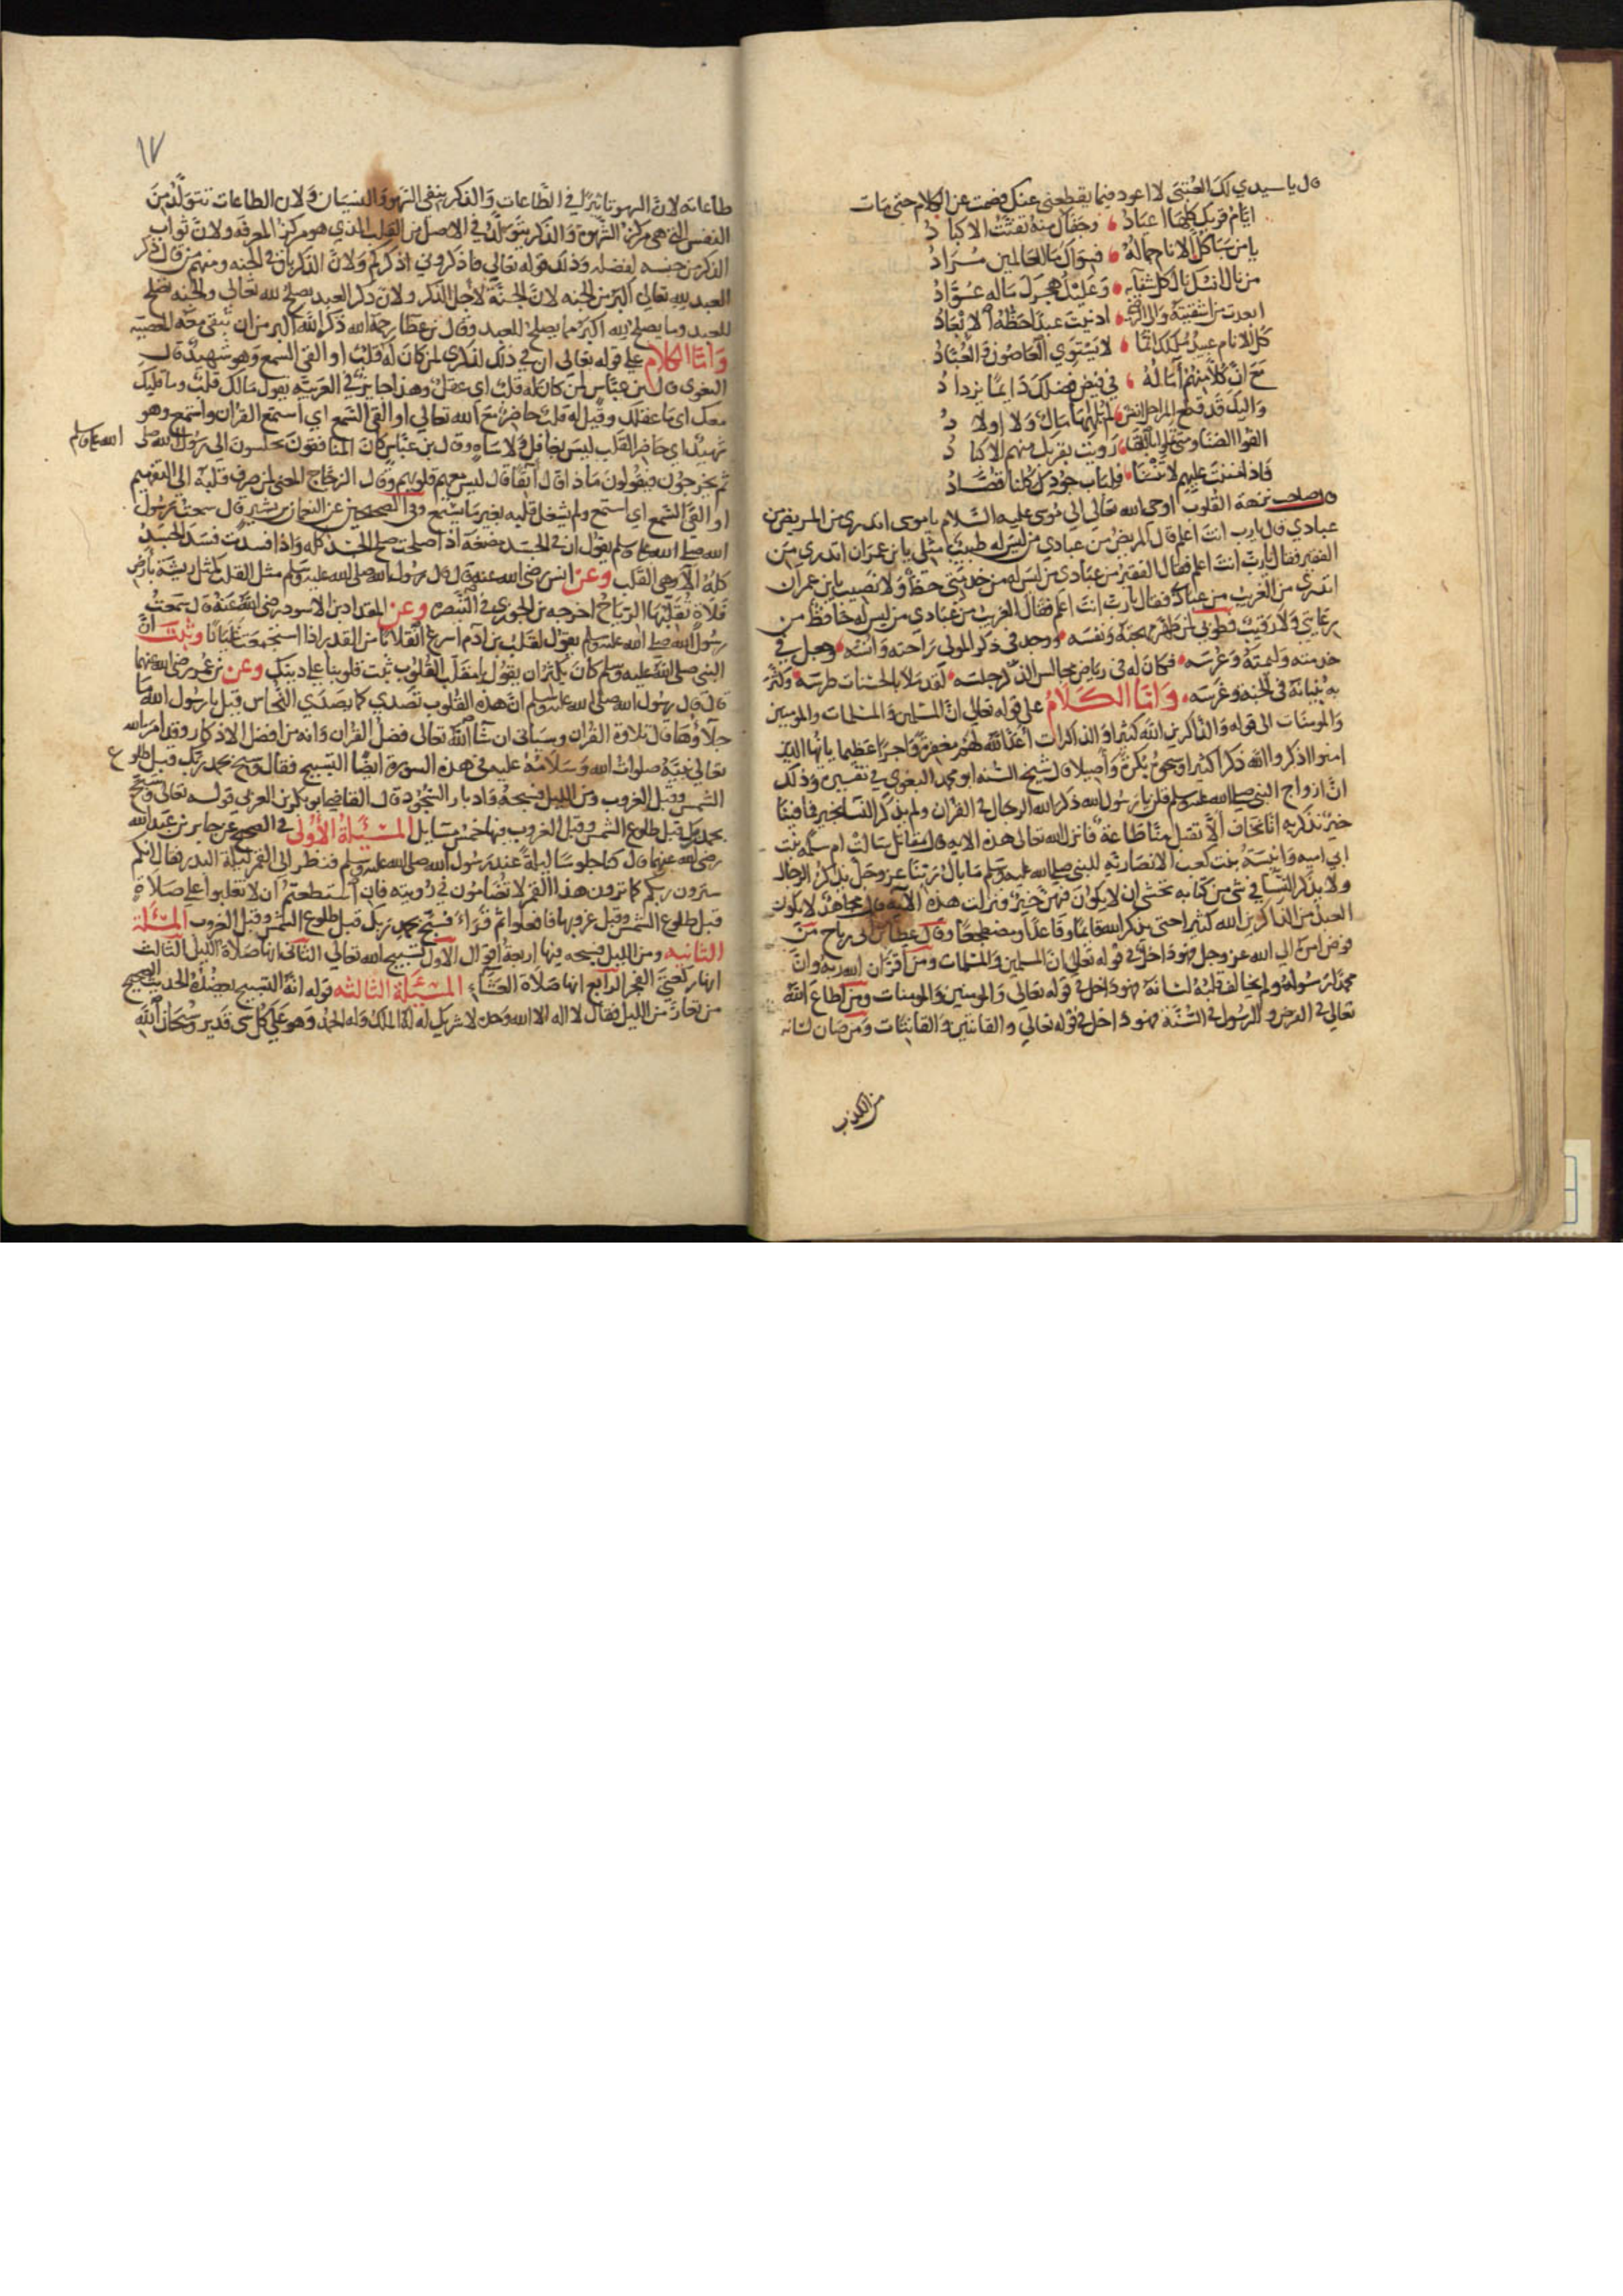 قال يا سيدي لك العتبى لا اعود فيما يقطعني عنك وصمت عن الكلام حتى مات
ايام قربك كلها اعياد وجفاك منه تفتت الاكباد
يا من سبا كل الانام جماله فسواك ما للعالمين مراد
من نال انسك نال كل
ابعدت من اشقيته والى الرضى ادنيت عبدا حظه الاسعاد
كل الانام عبيد ملكك انما لا يستوي العاصون والعباد
مع ان كلا منهم آماله في فيض فضلك دايما يزداد
واليك قد قطع المراحل انفس لم يلهها مال ولا اولاد
القوا الضنا ومتى رويت بقربك منهم الاكباد
فاذا مننت عليهم لا تنسنا فلباب جودك كلنا قصاد
قال صاحب نزهة القلوب اوحى الله تعالى الى موسى عليه السلام يا موسى اتدري من المريض من
عبادي قال يا رب انت اعلم قال المريض من عبادي من ليس له طبيب مثلي يا بن عمران اتدري من
الفقير فقال يا رب انت اعلم فقال الفقير من عبادي من ليس له من خدمتي حظ ولا نصيب يا بن عمران
اتدري من الغريب من عبادي فقال يا رب انت اعلم فقال الغريب من عبادي من ليس له حافظ من
رعايتي ولا رقيب فطوبى لمن طهر مهجته ونفسه ووجد في ذكر المولى راحته وانسه وجعل في
خدمته وغرسه فكان له في رياض مجالس الذكر جلسه لقد ملا بالحسنات طرسه وكثر
به بنيانه في الجنة وغرسه واما الكلام على قوله تعالى ان المسلمين والمسلمات والمومنين
والمومنات الى قوله والذاكرين الله كثيرا والذاكرات اعد الله لهم مغفرة واجرا عظيما يا ايها الذين
امنوا اذكروا الله ذكرا كثيرا وسبحوه بكرة واصيلا قال شيخ السنه ابو محمد البغوي في تفسيره وذلك
ان ازواج النبي صلى الله عليه وسلم قلن يا رسول الله ذكر الله الرجال في القران ولم يذكر النسا بخير فما فينا
خير نذكر به انا نخاف الا تقبل منا طاعة فانزل الله تعالى هذه الايه قال مقاتل سالت ام سلمه بنت
ابي اميه وانيسة بنت كعب الانصاريه للنبي صلى الله عليه وسلم ما بال ربنا عز وجل يذكر الرجال
ولا يذكر النسا في شي من كتابه نخشى ان لا يكون فيهن خير فنزلت هذه الآية قال مجاهد لا يكون
العبد من الذاكرين الله كثيرا حتى يذكر الله قائما وقاعدا ومضطجعا وقال عطا بن ابي رباح من
فوض امره الى الله عز وجل فهو داخل في قوله تعالى ان المسلمين والمسلمات ومن اقر ان الله ربه وان
محمدا رسوله ولم يخالف قلبه لسانه فهو داخل في قوله تعالى والمومنين والمومنات ومن اطاع الله
تعالى في الفرض والرسول في السنة فهو داخل في قوله تعالى والقانتين والقانتات ومن صان لسانه
من الكذب
١٧
طاعاته لان السهو تاثيرا في الطاعات والذكر ينفي السهو والنسيان ولان الطاعات تتولد من
النفس التي هي مركز الشهوة والذكر يتولد في الاصل من القلب الذي هو مركز المعرفه ولان ثواب
الذكر من جنسه لفضله وذلك قوله تعالى فاذكروني اذكركم ولان الذكر باق في الجنه ومنهم من قال ذكر
العبد لله تعالى اكبر من الجنه لان الجنة لاجل الذكر ولان ذكر العبد يصلح لله تعالى والجنه تصلح
للعبد وما يصلح لله اكبر مما يصلح للعبد وقال بن عطا رحمه الله ذكر الله اكبر من ان تبقى معه المعصيه
واما الكلام على قوله تعالى ان في ذلك لذكرى لمن كان له قلب او القى السمع وهو شهيد قال
البغوي قال بن عباس لمن كان له قلب اي عقل وهذا جايز في العربيه يقول مالك قلب وما قلبك
معك اي ما عقلك وقيل له قلب حاضر مع الله تعالى او القى السمع اي استمع القران واستمع وهو
شهيد اي حاضر القلب ليس بغافل ولا ساه وقال بن عباس كان المنافقون يجلسون الى رسول الله صلى الله عليه وسلم
ثم يخرجون فيقولون ماذا قال آنفا قال ليس معهم قلوبهم وقال الزجاج المعنى لمن صرف قلبه الى التفهيم
او القى السمع اي استمع ولم يشغل قلبه بغير ما يستمع وفي الصحيحين عن النعمان بن بشير قال سمعت رسول
الله صلى الله عليه وسلم يقول ان في الجسد مضغة اذا صلحت صلح الجسد كله واذا فسدت فسد الجسد
كله الا وهي القلب وعن انس رضي الله عنه قال قال رسول الله صلى الله عليه وسلم مثل القلب كمثل ريشة بارض
فلاة تقلبها الرياح اخرجه بن الجوزي في التبصره وعن المقداد بن الاسود رضي الله عنه قال سمعت
رسول الله صلى الله عليه وسلم يقول لقلب بن ادم اسرع انقلابا من القدر اذا استجمعت غليانا وثبت ان
النبي صلى الله عليه وسلم كان يكثر ان يقول يا مقلب القلوب ثبت قلوبنا على دينك وعن بن عمر رضي الله عنهما
قال قال رسول الله صلى الله عليه وسلم ان هذه القلوب تصدي كما يصدي النحاس قيل يا رسول الله ما
جلاؤها قال تلاوة القران وسياتي ان شا الله تعالى فضل القران وانه من افضل الاذكار وقد امر الله
تعالى نبيه صلوات الله وسلامه عليه في هذه السورة ايضا التسبيح فقال وسبح بحمد ربك قبل طلوع
الشمس وقبل الغروب ومن الليل فسبحه وادبار السجود قال القاضي ابو بكر بن العربي قوله تعالى وسبح
بحمد ربك قبل طلوع الشمس وقبل الغروب فيها خمس مسايل المسئلة الأولى في الصحيح عن جابر بن عبد الله
رضي الله عنهما قال كنا جلوسا ليلة عند رسول الله صلى الله عليه وسلم فنظر الى القمر ليلة البدر فقال انكم
سترون ربكم كما ترون هذا القمر لا تضامون في رويته فان استطعتم ان لا تغلبوا على صلاة
قبل طلوع الشمس وقبل غروبها فافعلوا ثم قراء فسبح بحمد ربك قبل طلوع الشمس وقبل الغروب المسئلة
الثانيه ومن الليل فسبحه فيها اربعة اقوال الاول تسبيح الله تعالى الثاني انها صلاة الليل الثالث
انها ركعتي الفجر الرابع انها صلاة العشاء المسئلة الثالثه قوله انه التسبيح يعضده الحديث الصحيح
من تعار من الليل فقال لا اله الا الله وحده لا شريك له له الملك وله الحمد وهو على كل شي قدير وسبحان الله